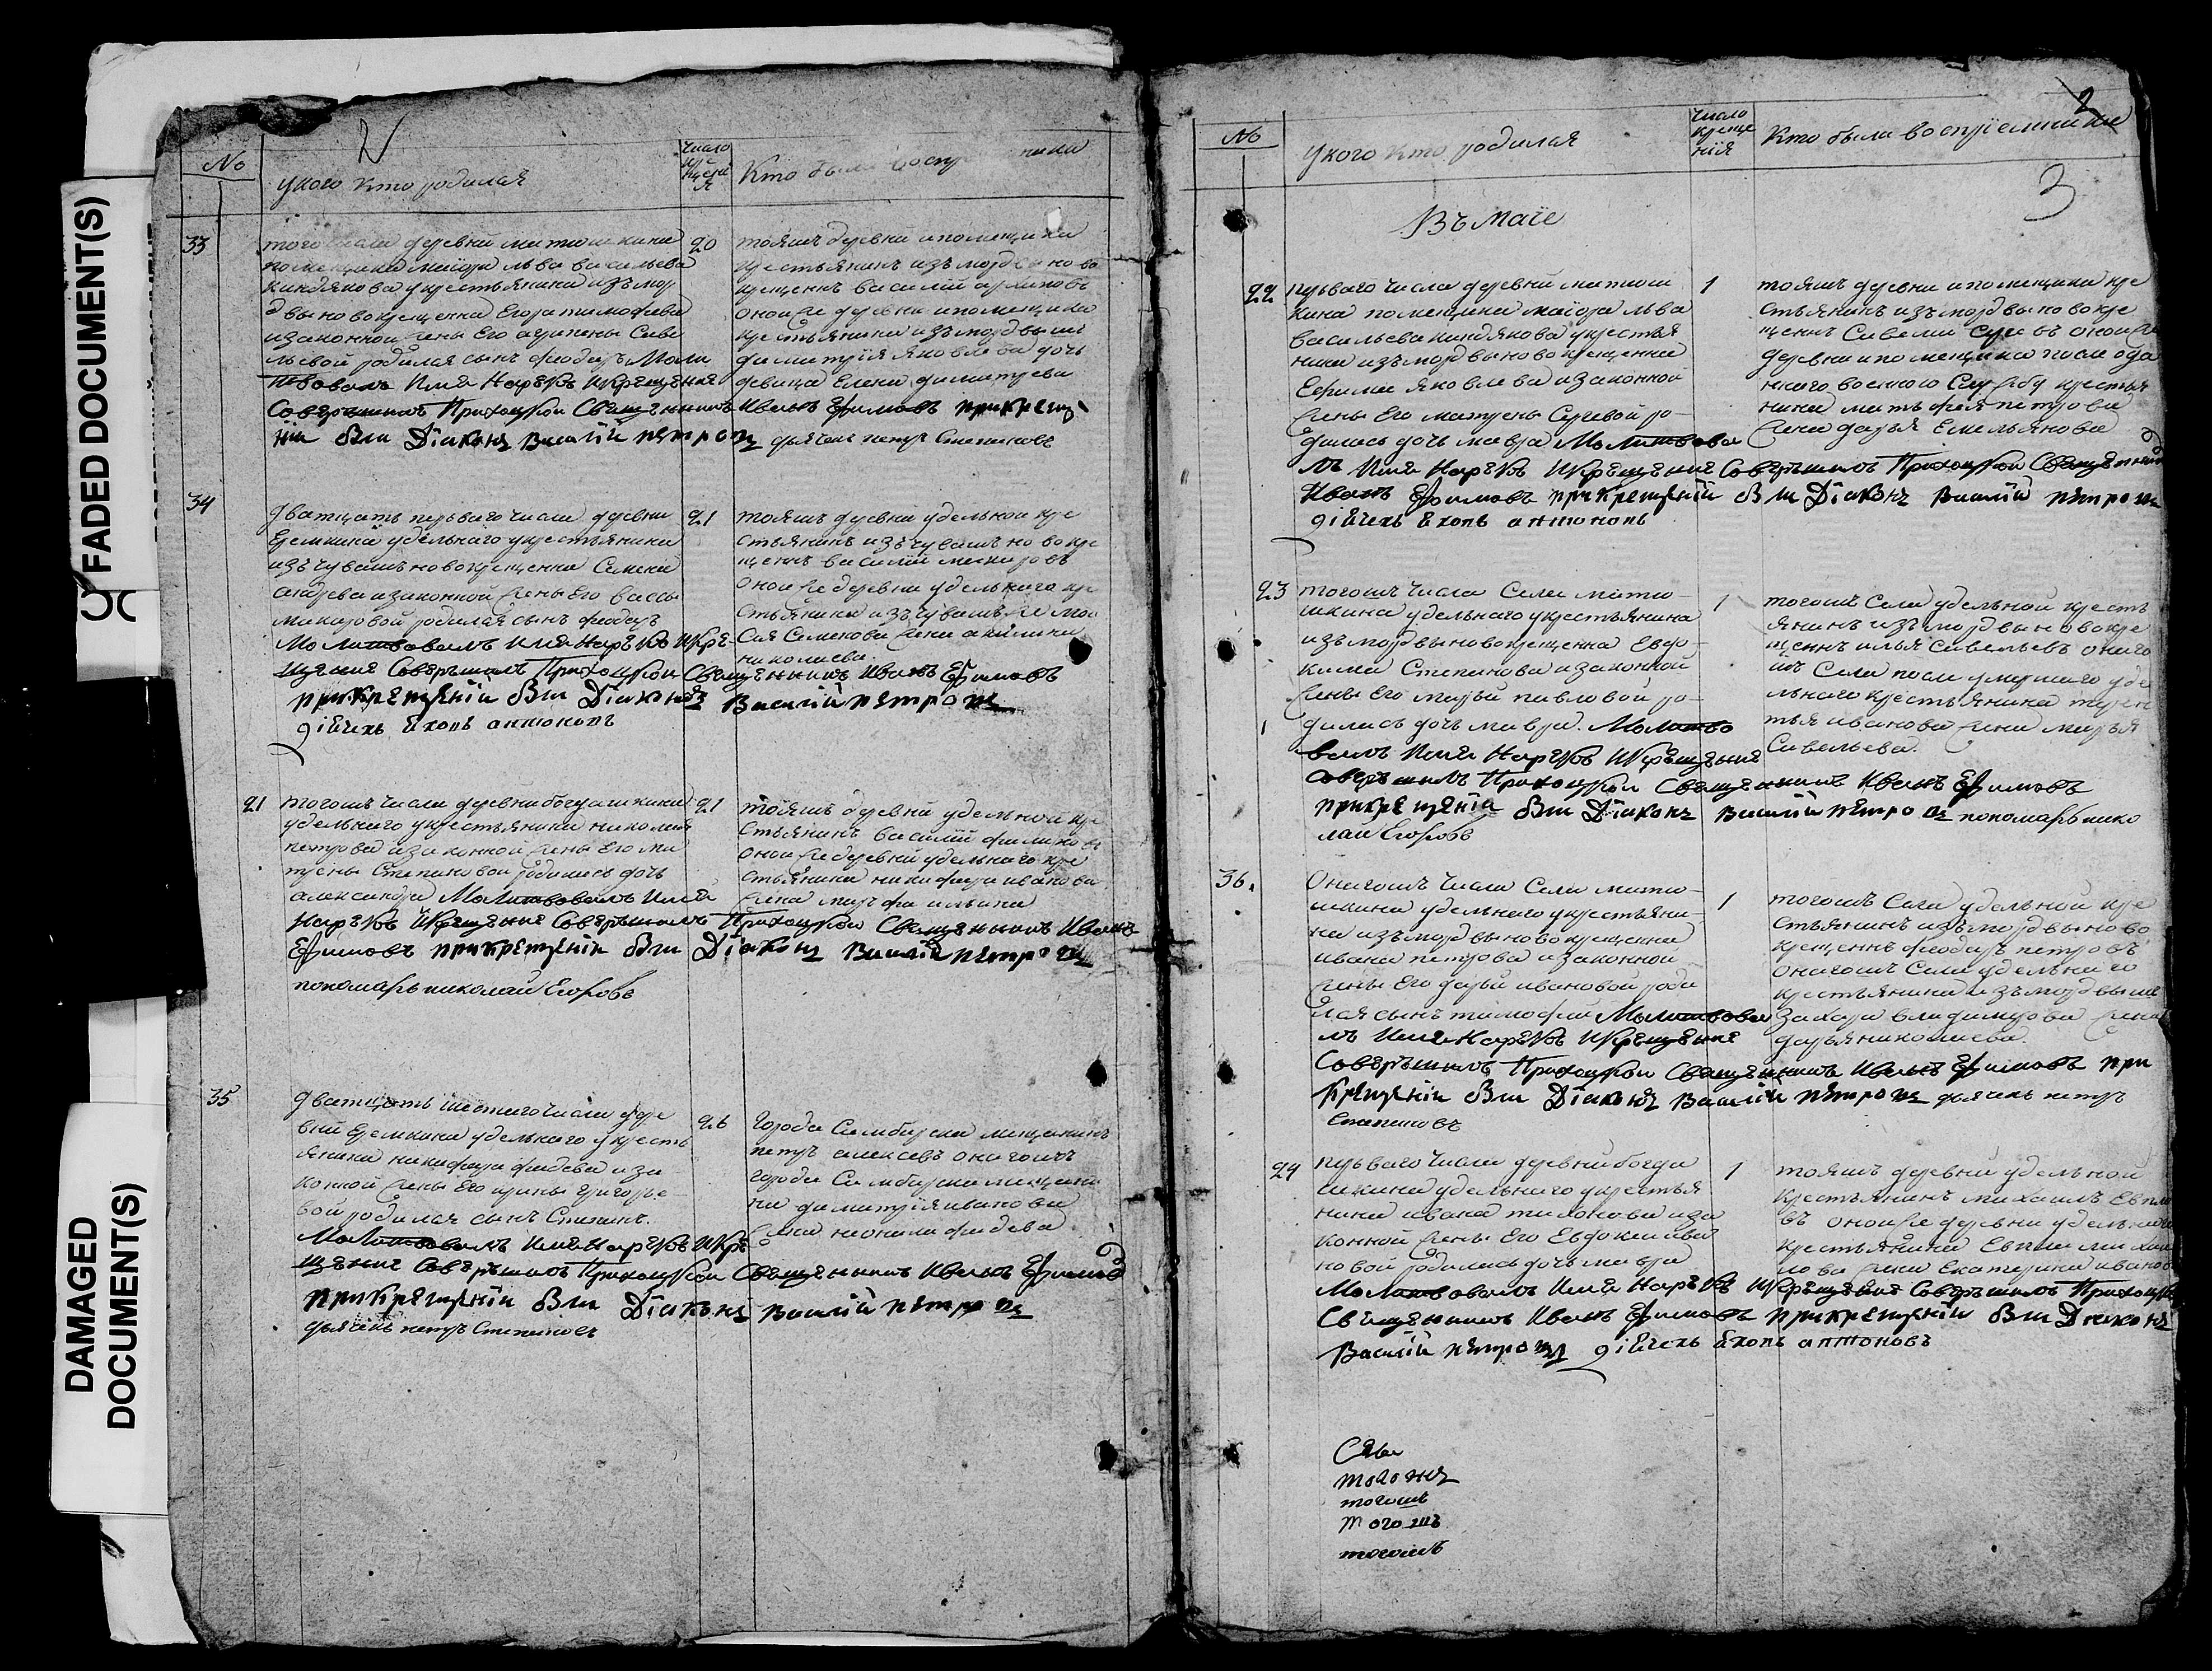 FADED DOCUMENT(S)
DAMAGED
DOCUMENT(S)
2
No
укого кто родился
число
кто были
33
того числа деревни матюшкина
помещика маиора льва васильева
киндякова укрестьянина изъмор
двы новокрещенна Егора тимофеева
изаконной жены Его агрипены Саве
льевой родился сынъ феодоръ Моли
твовалъ Имя Нарекъ Икрещение
Совершилъ Приходской Священникъ Иванъ Ефимовъ прикреще
ніи былъ Діаконъ Василій петровъ дьячекъ петръ Степановъ
20
тояжъ деревни ипомещика
крестьянинъ изъмордвы ново
крещенъ василій
оной же деревни ипомещика
крестьянина изъмордвы
димитрія яковлева дочь
девица Елена димитрева
34
дватцать перваго числа деревни
Еремкина удельнаго укрестьянина
изъчувашъ новокрещенна Семена
андреева изаконной жены Его
макаровой родился сынъ феодоръ
Молитвовалъ имя Нарекъ Икре-
щение Совершилъ Приходской Священникъ Иванъ Ефимовъ
прикрещеніи былъ Діаконъ Василій петровъ
діячекъ антоновъ
21
тояжъ деревни удельной кре
стьянинъ изъчувашъ новокре
щенъ василій макаровъ
оной же деревни удельнаго кре
стьянина изъчувашъ же
Семенова жена акилина
николаева
21
тогожъ числа деревни богдашкина
удельнаго укрестьянина николая
петрова изаконной жены Его ма
трены Степановой родилась дочь
александра Молитвовалъ Имя
Нарекъ Икрещение Совершилъ Приходской Священникъ Иванъ
Ефимовъ прикрещеніи былъ Діаконъ Василій петровъ
пономарь николай Егоровъ
21
тояжъ деревни удельной кре
стьянинъ василій филиповъ
оной же деревни удельнаго кре
стьянина никифора иванова
жена марфа ильина
35
дватцать шестаго числа дере
вни Еремкина удельнаго укресть
янина никифора фадеева иза
конной жены Его ирины григорье
вой родился сынъ Степанъ.
Молитвовалъ имя Нарекъ Икре
щение Совершилъ Приходской Священникъ Иванъ Ефимовъ
прикрещеніи былъ Діаконъ Василій петровъ
дьячекъ петръ Степановъ
26
города Симбирска мещанинъ
петръ алексевъ онагожъ
города Симбирска мещани
на димитрія иванова
жена неонила фадева
2
3
No
укого кто родился
число
креще
нія
кто были воспріемники
Въ маіе
22
перваго числа деревни матюш
кина помещика маіора льва
васильева киндякова укрестья
нина изъмордвы новокрещенна
Ефима яковлева изаконной
жены Его матрены Сергевой ро-
дилась дочь мавра Молитвова
лъ Имя Нарекъ Икрещение Совершилъ Приходской Священникъ
Иванъ Ефимовъ прикрещеніи былъ Діаконъ Василій петровъ
діячекъ антоновъ
1
тояжъ деревни ипомещика кре
стьянинъ изъмордвы новокре
щенъ Савелий оной же
деревни ипомещика после отда
ннаго военною Службу крестья
нина матфея петрова
жена дарья Емельянова
23
тогожъ числа Села матю-
шкина удельнаго укрестьянина
изъмордвы новокрещенна Евдо-
кима Степанова изаконной
жены Его марьи павловой ро-
дилась дочь мавра. Молитво
валъ Имя Нарекъ Икрещение
Совершилъ Приходской Священникъ Иванъ Ефимовъ
прикрещеніи былъ Діаконъ Василій петровъ пономарь нико
лай Егоровъ
1
тогожъ Села удельной кресть
янинъ изъмордвы новокре
щенъ илья Савельевъ онаго
жъ Села после умершаго уде
льнаго крестьянина терен
тья иванова жена марья
Савельева.
36.
Онагожъ числа Села матю-
шкина удельнаго укрестьяни-
на изъмордвы новокрещенна
ивана петрова изаконной
жены Его дарьи ивановой роди
лся сынъ тимофей Молитвова
лъ Имя Нарекъ Икрещение
Совершилъ Приходской Священникъ Иванъ Ефимовъ при
крещеніи былъ Діаконъ Василій петровъ дьячекъ петръ
Степановъ
1
тогожъ Села удельной кре
стьянинъ изъмордвы ново
крещенъ феодоръ петровъ
онагожъ Села удельнаго
крестьянина изъмордвы
Захара владимерова жена
дарья николаева.
24
перваго числа деревни богда
шкина удельнаго укрестья
нина ивана тихонова иза
конной жены Его Евдокеи
новой родилась дочь мавра
Молитвовалъ Имя Нарекъ Икрещение Совершилъ Приходской
Священникъ Иванъ Ефимовъ прикрещеніи былъ Діаконъ
Василій петровъ діячекъ антоновъ
1
тояжъ деревни удельной
крестьянинъ михаилъ
въ оной же деревни удельнаго
крестьянина
жена Екатерина иванова
тогожъ
тогожъ
тогожъ